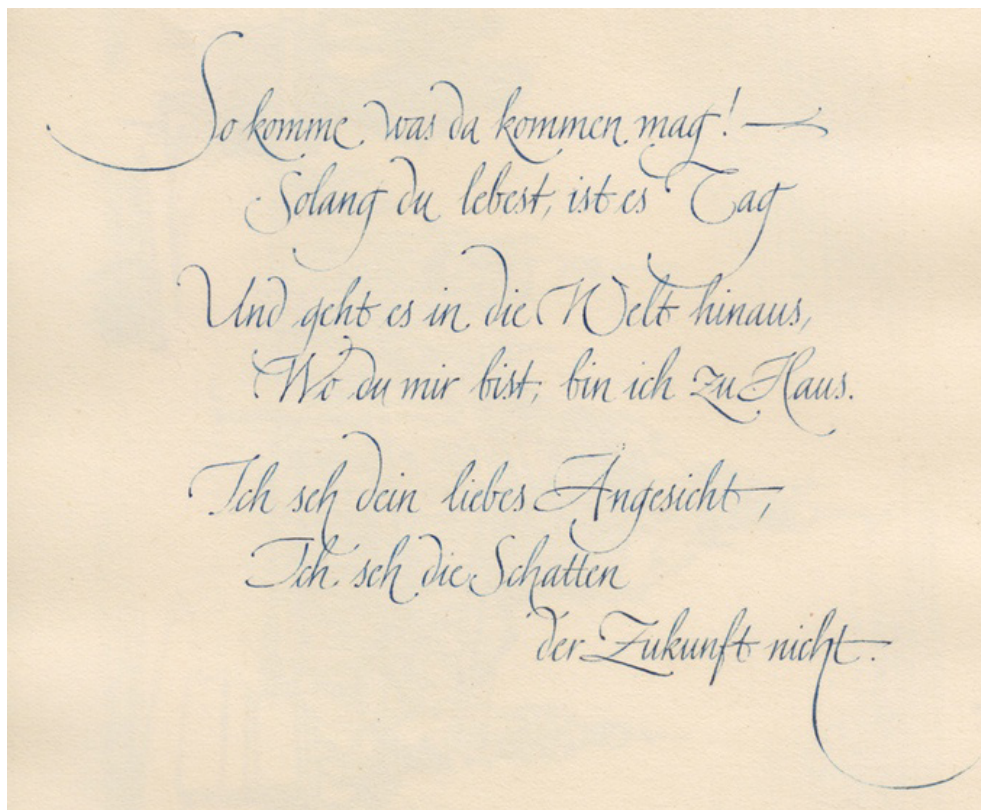 So komme was da kommen mag!
Solang du lebest, ist es Tag
Und geht es in die Welt hinaus,
Wo du mir bist, bin ich zu Haus.
Ich seh dein liebes Angesicht,
Ich seh die Schatten
der Zukunft nicht.